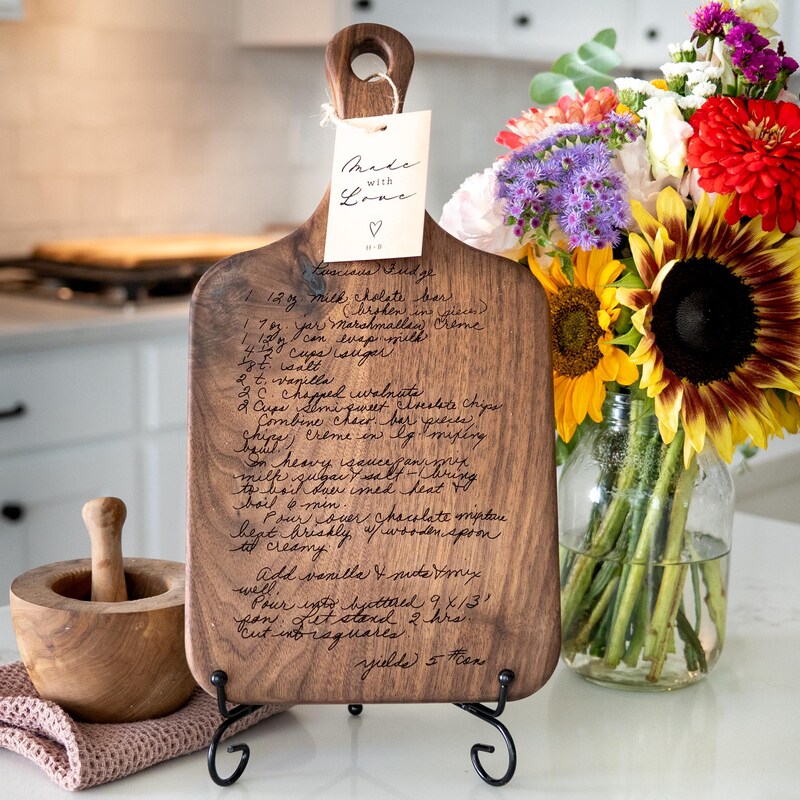 Made
with
Love
H-B
Luscious Fudge
1 12 oz milk cholate bar
(broken in pieces)
1 7 oz. jar Marshmallow Creme
1 13 oz can evap. milk
4 ½ cups sugar
⅛ t. salt
2 t. vanilla
2 C. chopped walnuts
2 Cups semi sweet chocolate chips
Combine choco. bar pieces,
chips, creme in lg. mixing
bowl.
In heavy saucepan mix
milk sugar & salt - bring
to boil over med heat &
boil 6 min.
Pour over chocolate mixture
beat briskly w/ wooden spoon
til creamy.
Add vanilla & nuts & mix
well.
Pour into buttered 9 X 13"
pan. Let stand 2 hrs.
cut into squares.
yields 5 #